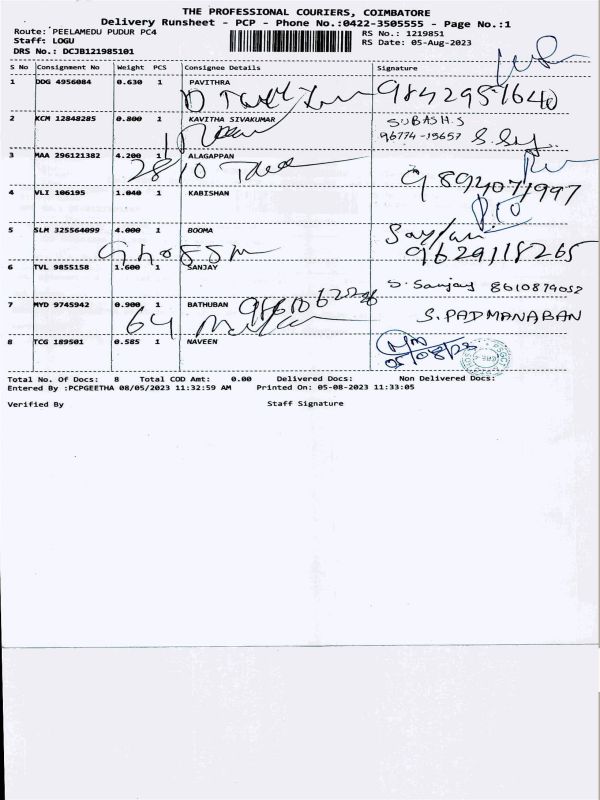 THE PROFESSIONAL COURIERS, COIMBATORE
Delivery Runsheet - PCP - Phone No.:0422-3505555 - Page No.:1
Route: PEELAMEDU PUDUR PC4 RS No.: 1219851
Staff: LOGU RS Date: 05-Aug-2023
DRS No.: DCJB121985101
S No Consignment No Weight PCS Consignee Details Signature
1 DDG 4956084 0.630 1 PAVITHRA
2 KCM 12848285 0.800 1 KAVITHA SIVAKUMAR SUBASH.S
96774-15657
3 MAA 296121382 4.200 1 ALAGAPPAN
9894071997
4 VLI 106195 1.040 1 KABISHAN
5 SLM 325564099 4.000 1 BOOMA
9629118265
6 TVL 9855158 1.600 1 SANJAY S. Sanjay 8610879052
7 MYD 9745942 0.900 1 BATHUBAN
64 S. PADMANABAN
8 TCG 189501 0.585 1 NAVEEN 05/08/23
Total No. Of Docs: 8 Total COD Amt: 0.00 Delivered Docs: Non Delivered Docs:
Entered By :PCPGEETHA 08/05/2023 11:32:59 AM Printed On: 05-08-2023 11:33:05
Verified By Staff Signature